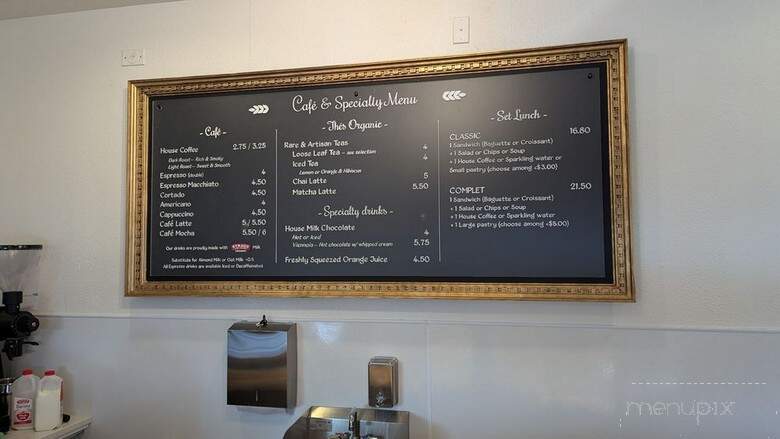 Café & Specialty Menu
- Café -
House Coffee 2.75 / 3.25
Dark Roast - Rich & Smoky
Light Roast - Sweet & Smooth
Espresso (double) 4
Espresso Macchiato 4.50
Cortado 4.50
Americano 4
Cappuccino 4.50
Café Latte 5 / 5.50
Café Mocha 5.50 / 6
Our drinks are proudly made with STRAUS Milk
Substitute for Almond Milk or Oat Milk
All Espresso drinks are available Iced or Decaffeinated
- Thés Organic -
Rare & Artisan Teas
Loose Leaf Tea - see selection 4
Iced Tea 4
Lemon or Orange & Hibiscus
Chai Latte 5
Matcha Latte 5.50
- Specialty drinks -
House Milk Chocolate 4
Hot or Iced
Viennois - Hot chocolate w/ whipped cream 5.75
Freshly Squeezed Orange Juice 4.50
- Set Lunch -
CLASSIC 16.80
1 Sandwich (Baguette or Croissant)
+ 1 Salad or Chips or Soup
+ 1 House Coffee or Sparkling water or
Small pastry (choose among <$3.00)
COMPLET 21.50
1 Sandwich (Baguette or Croissant)
+ 1 Salad or Chips or Soup
+ 1 House Coffee or Sparkling water
+ 1 Large pastry (choose among <$5.00)
menupix